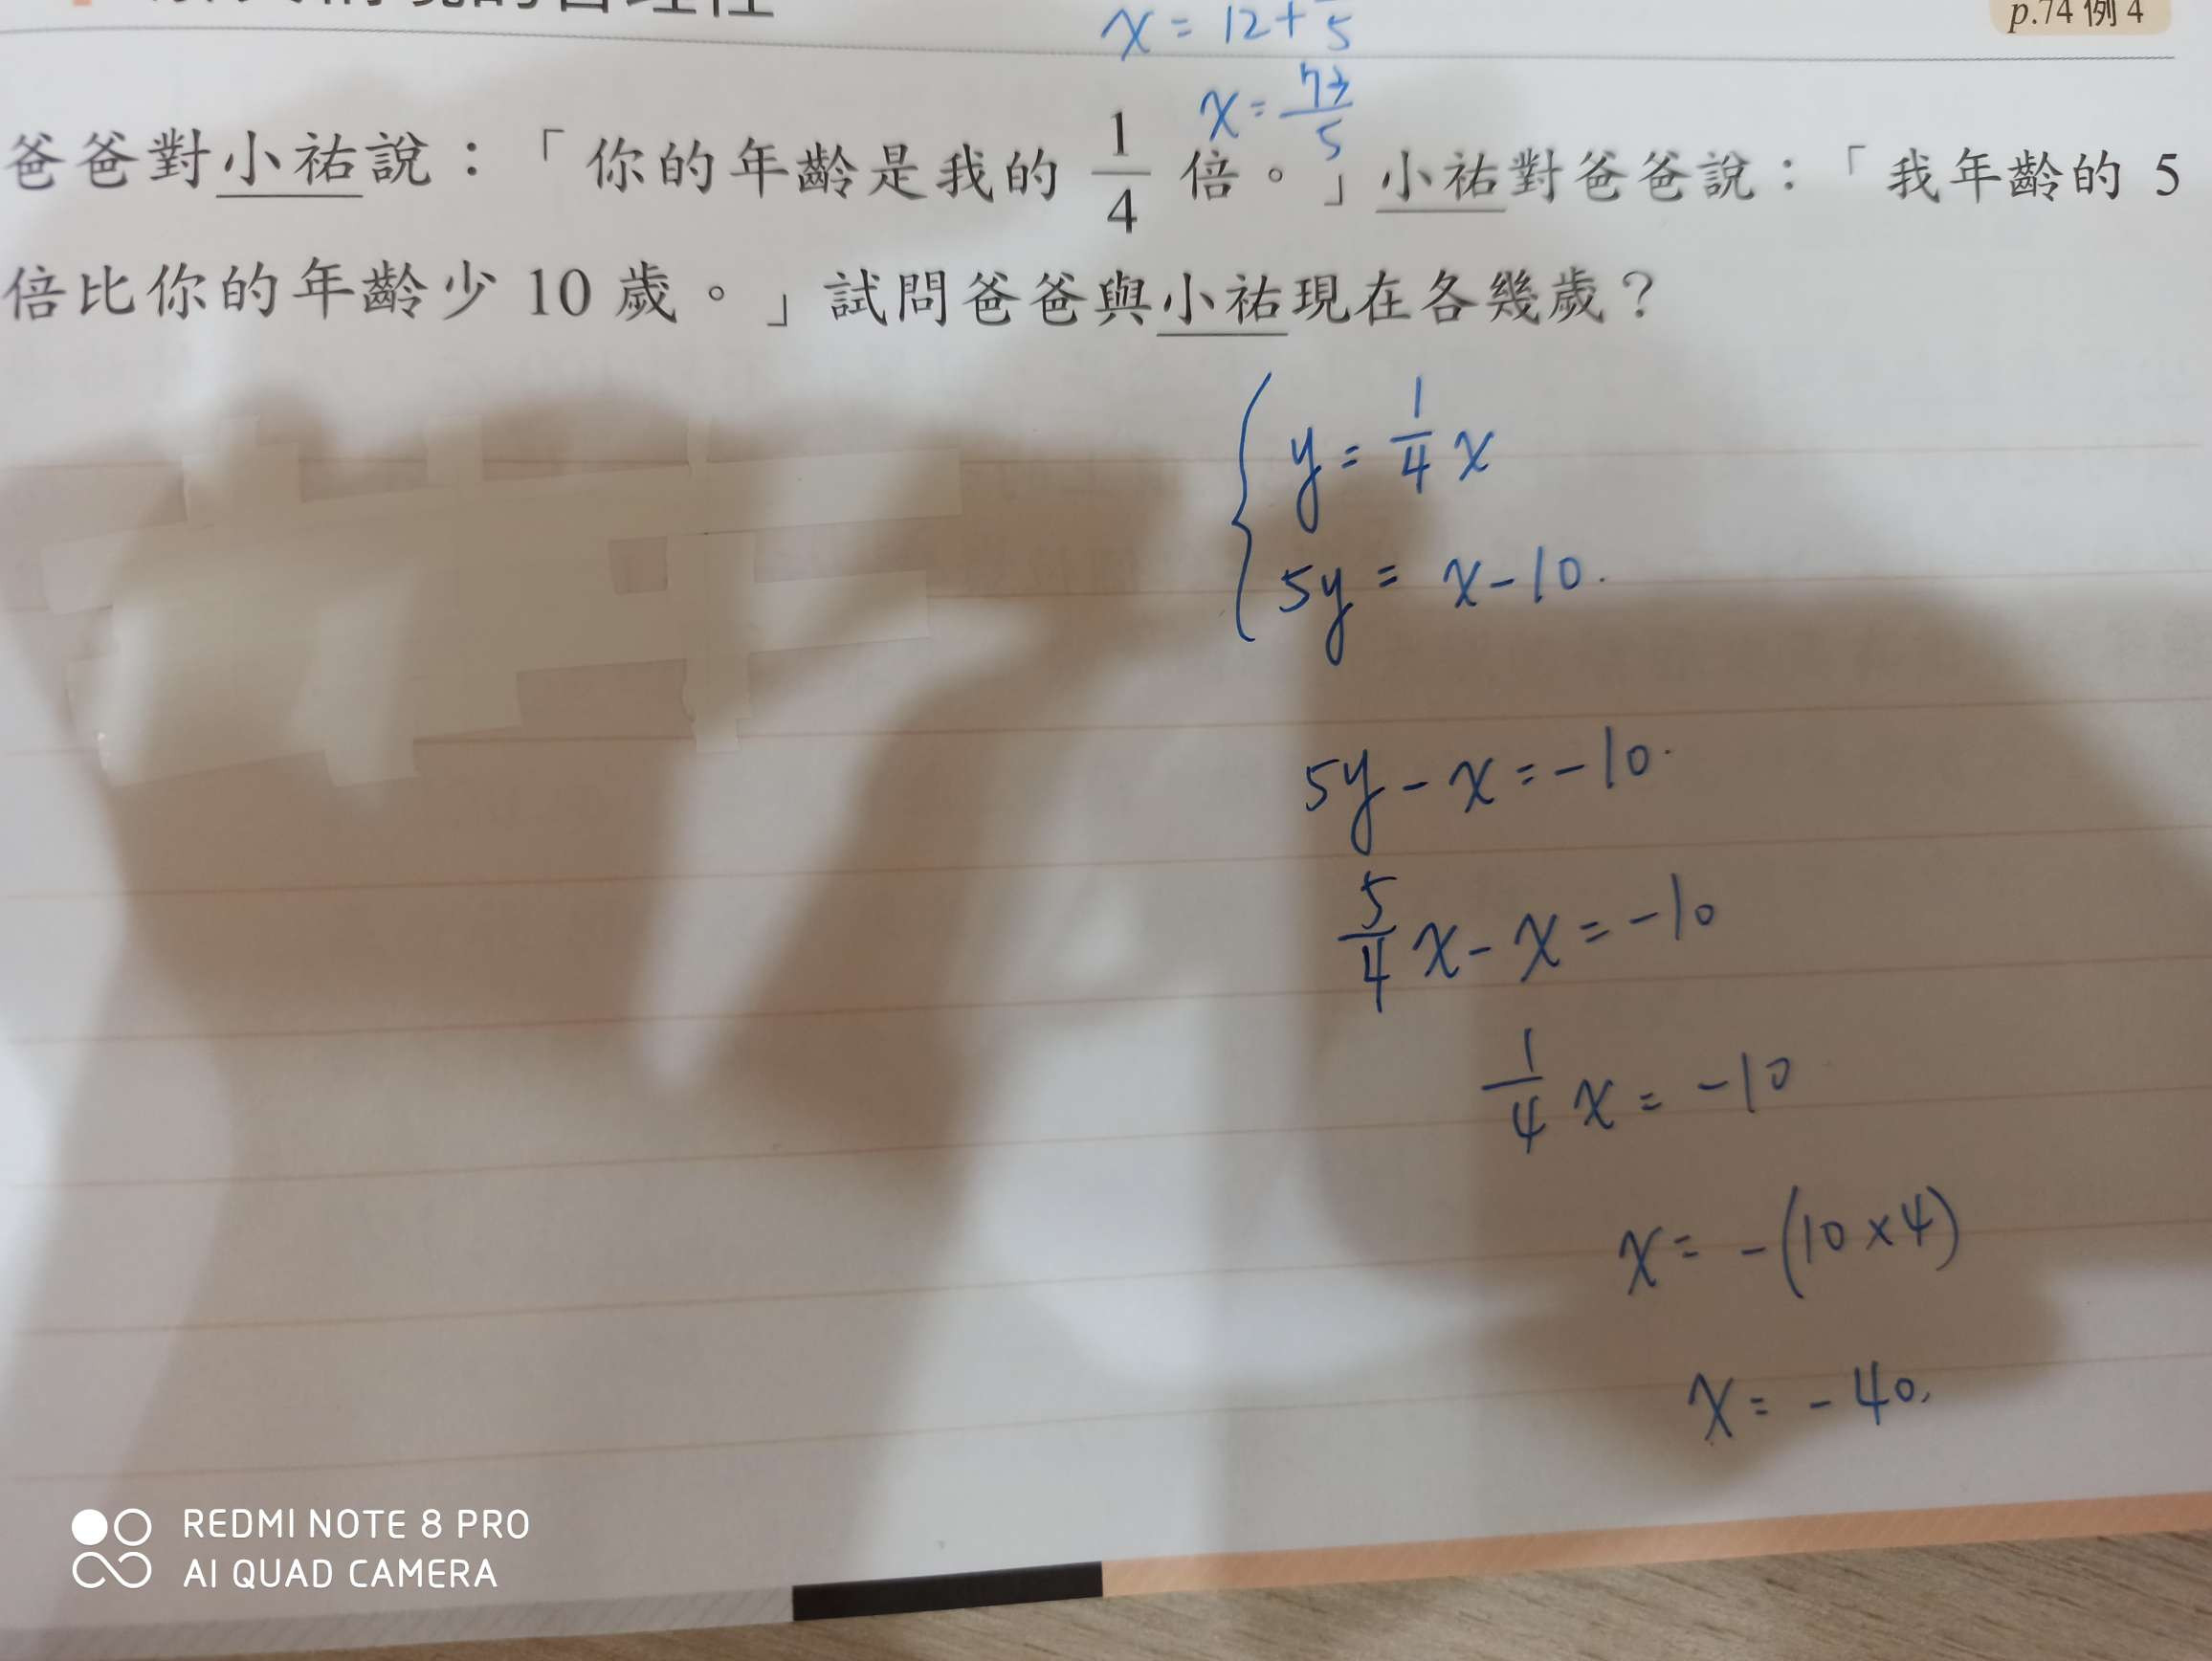 x = 12 + 5
p.74 例 4
x = 73/5
爸爸對小祐說：「你的年齡是我的 1/4 倍。」小祐對爸爸說：「我年齡的 5
倍比你的年齡少 10 歲。」試問爸爸與小祐現在各幾歲？
y = 1/4 x
5y = x - 10.
5y - x = -10.
5/4 x - x = -10
1/4 x = -10
x = -(10 × 4)
x = -40,
REDMI NOTE 8 PRO
AI QUAD CAMERA